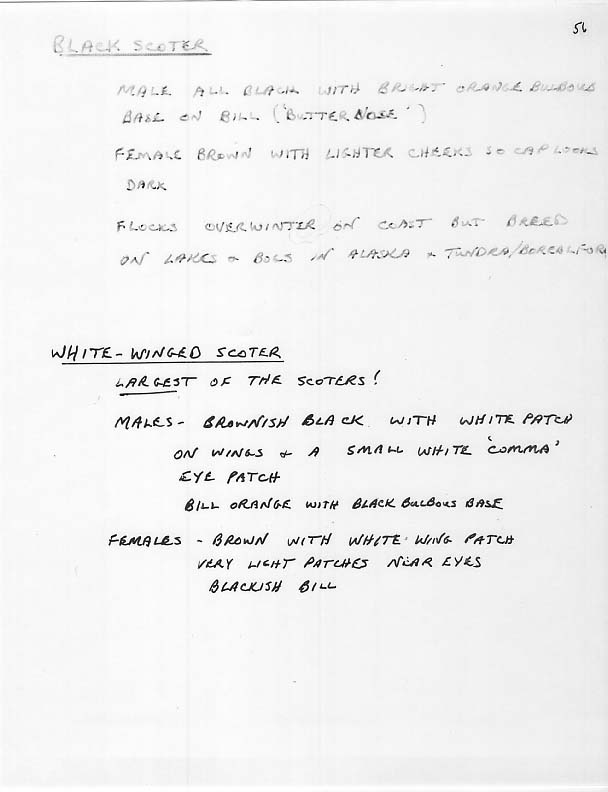 56
BLACK SCOTER
MALE ALL BLACK WITH BRIGHT ORANGE BULBOUS
BASE ON BILL ('BUTTER NOSE')
FEMALE BROWN WITH LIGHTER CHEEKS SO CAP LOOKS
DARK
FLOCKS OVERWINTER ON COAST BUT BREED
ON LAKES & BOGS IN ALASKA & TUNDRA/BOREAL FOR
WHITE-WINGED SCOTER
LARGEST OF THE SCOTERS!
MALES - BROWNISH BLACK WITH WHITE PATCH
ON WINGS & A SMALL WHITE 'COMMA'
EYE PATCH
BILL ORANGE WITH BLACK BULBOUS BASE
FEMALES - BROWN WITH WHITE WING PATCH
VERY LIGHT PATCHES NEAR EYES
BLACKISH BILL